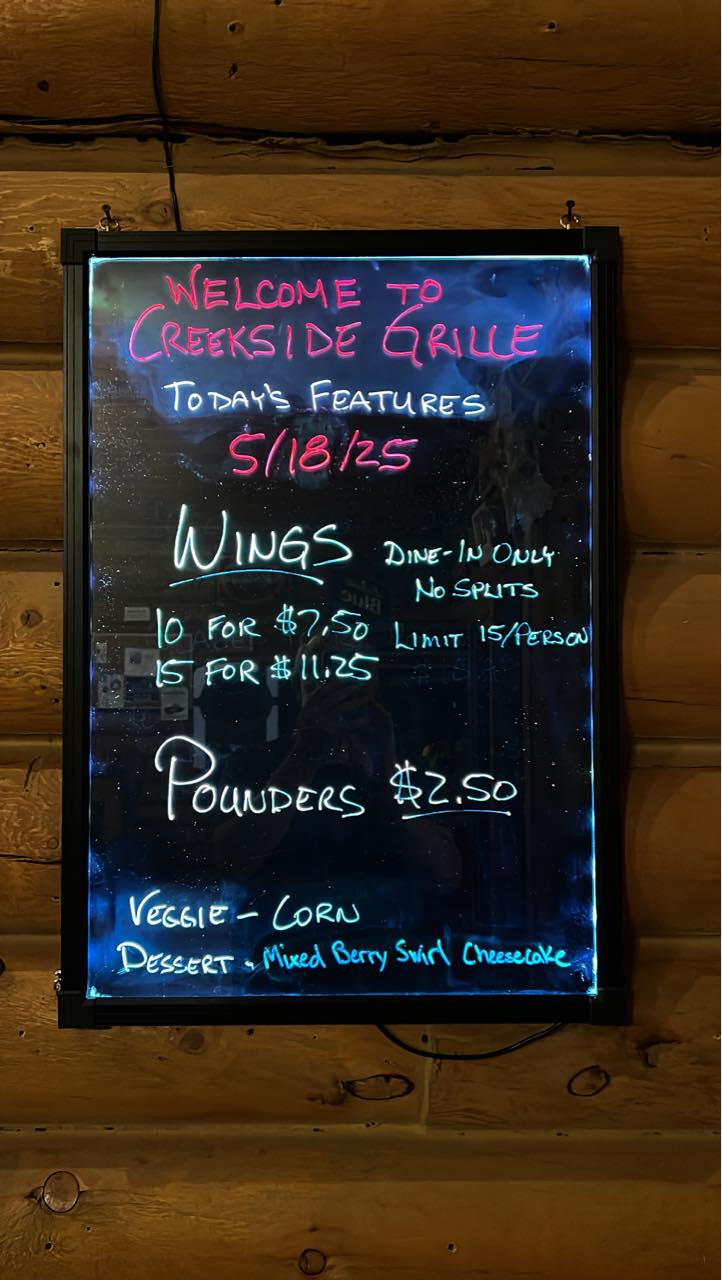 WELCOME TO
CREEKSIDE GRILLE
TODAY'S FEATURES
5/18/25
WINGS
DINE-IN ONLY
NO SPLITS
10 FOR $7.50
LIMIT 15/PERSON
15 FOR $11.25
POUNDERS $2.50
VEGGIE - CORN
DESSERT - Mixed Berry Swirl Cheesecake